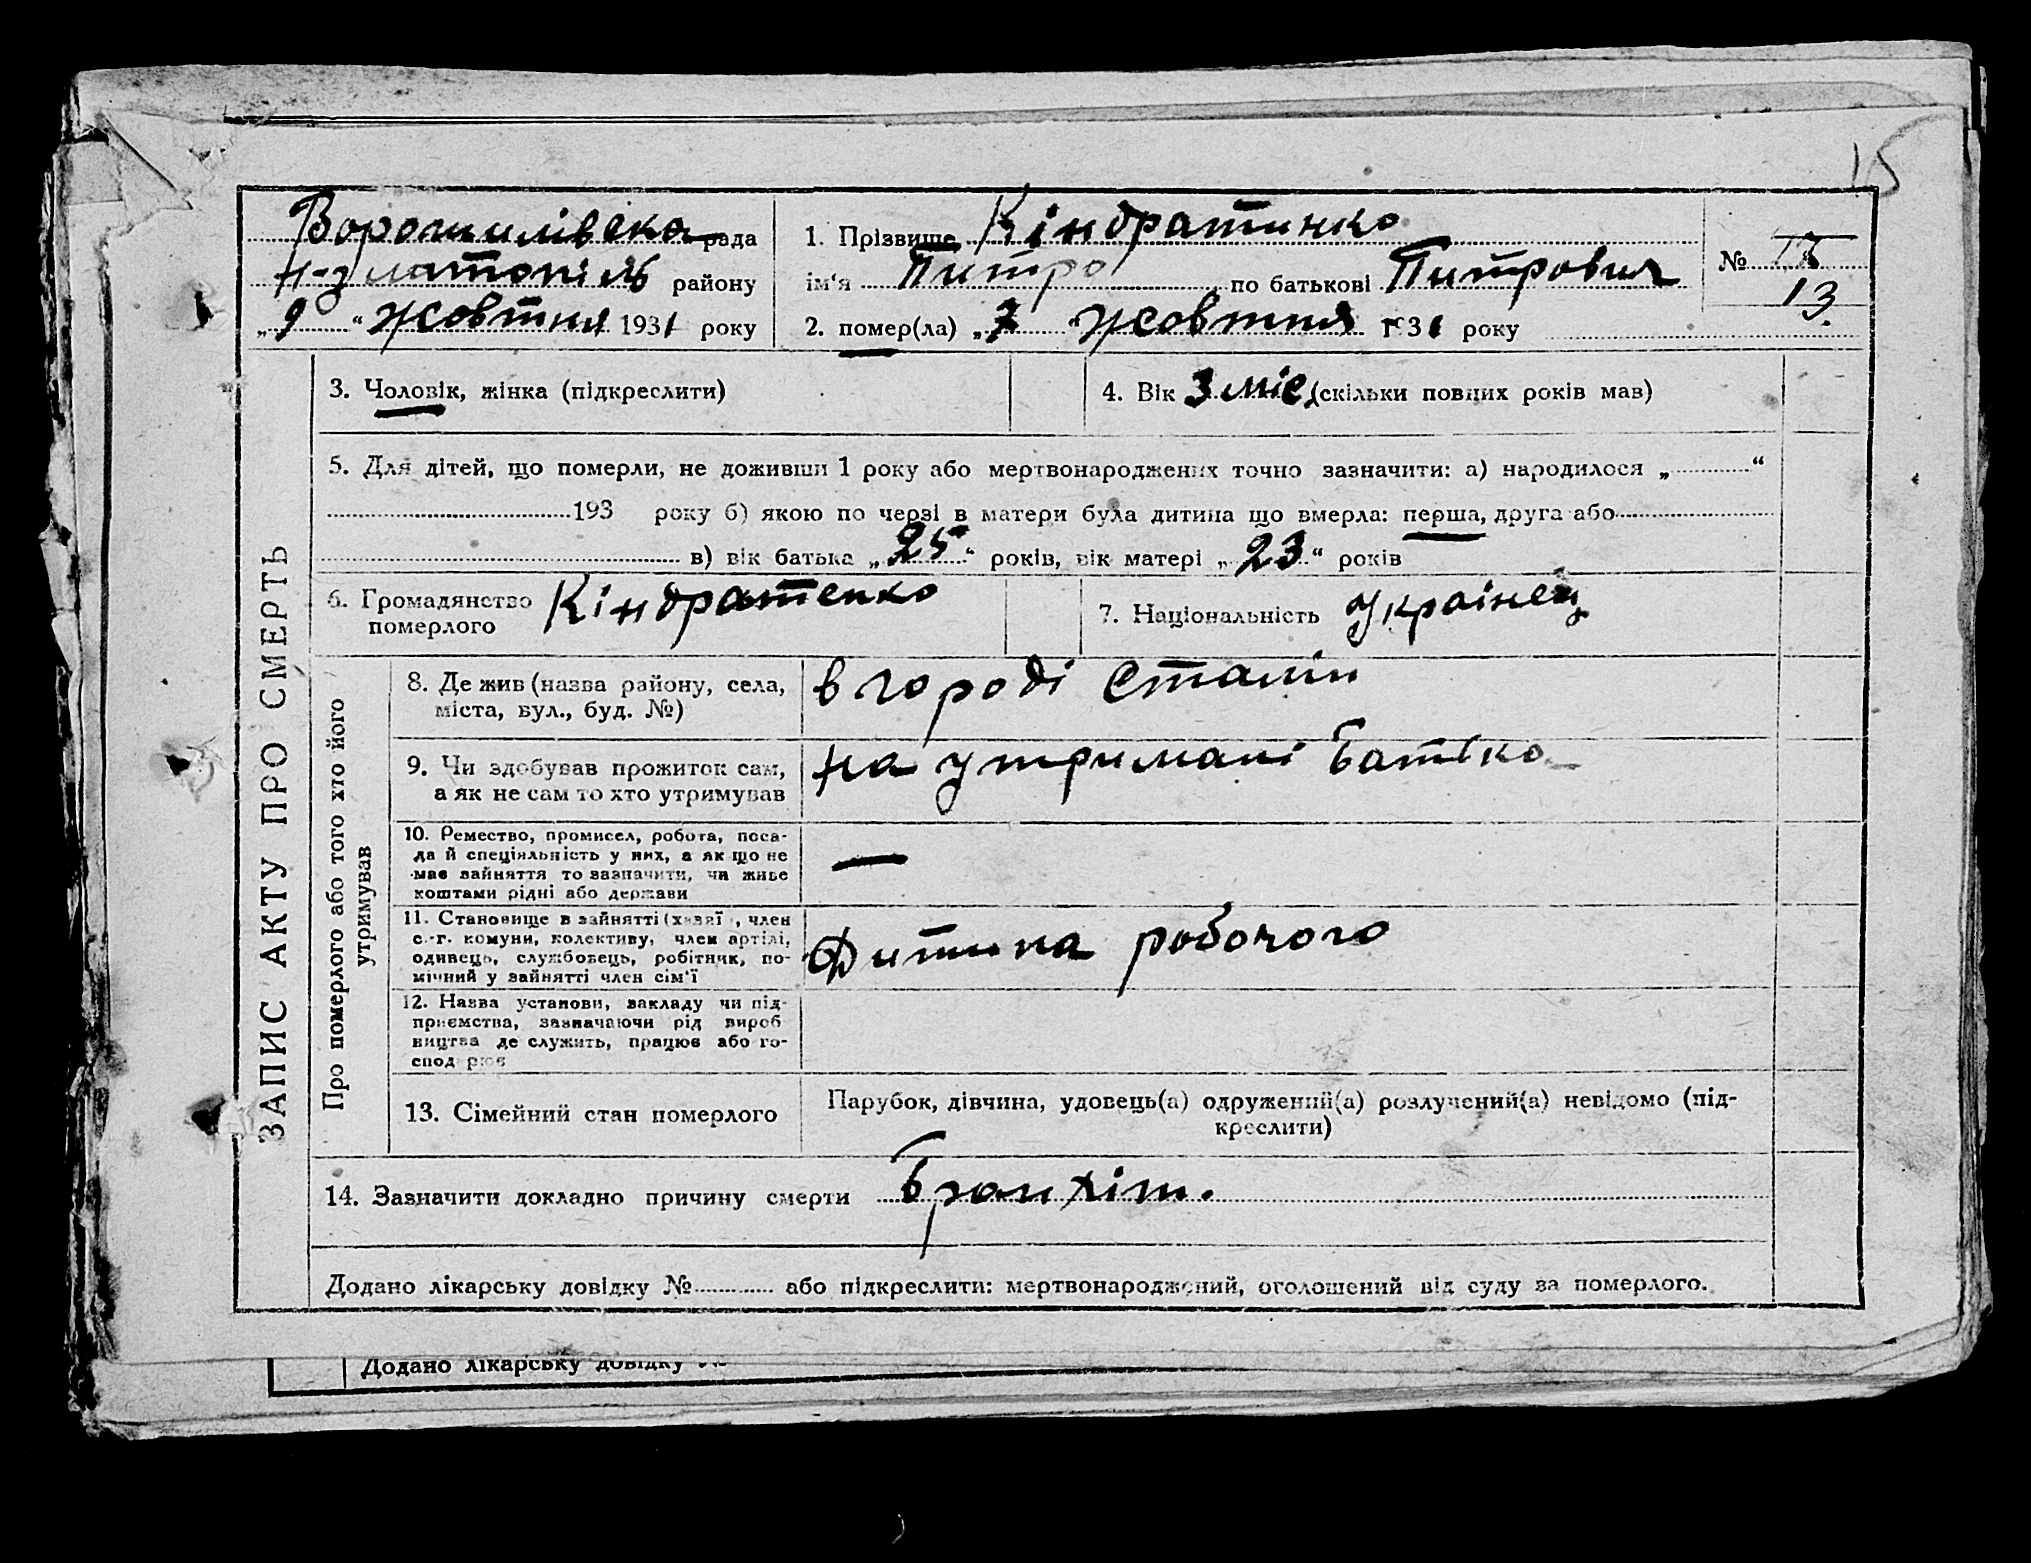 15
Ворошилівска рада
Н-златопіль району
„ 9 “ жовтня 1931 року
1. Прізвище Кіндратинко
ім'я Питро по батькові Питрович
2. помер(ла) „ 7 “ жовтня 1931 року
№
13.
ЗАПИС АКТУ ПРО СМЕРТЬ
3. Чоловік, жінка (підкреслити)
4. Вік 3 міс. (скільки повних років мав)
5. Для дітей, що померли, не доживши 1 року або мертвонароджених точно зазначити: а) народилося „ “
193 року б) якою по черзі в матери була дитина що вмерла: перша, друга або
в) вік батька „ 25 “ років, вік матері „ 23 “ років
6. Громадянство
померлого
Кіндратенко
7. Національність Українец
Про померлого або того хто його
утримував
8. Де жив (назва району, села,
міста, вул., буд. №)
в городі Сталін
9. Чи здобував прожиток сам,
а як не сам то хто утримував
на утримані батька
10. Ремество, промисел, робота, поса-
да й спеціяльність у них, а як що не
має зайняття то зазначити, чи живе
коштами рідні або держави
—
11. Становище в зайнятті (хазяї , член
с.-г. комуни, колективу, член артілі,
одивець, службовець, робітник, по-
мічний у зайнятті член сім'ї
Дитина робочого
12. Назва установи, закладу чи під-
приємства, зазначаючи рід вироб
ництва де служить, працює або го-
сподарює
13. Сімейний стан померлого
Парубок, дівчина, удовець(а) одружений(а) розлучений(а) невідомо (під-
креслити)
14. Зазначити докладно причину смерти Бронхіт.
Додано лікарську довідку № або підкреслити: мертвонароджений, оголошений від суду за померлого.
Додано лікарську довідку №